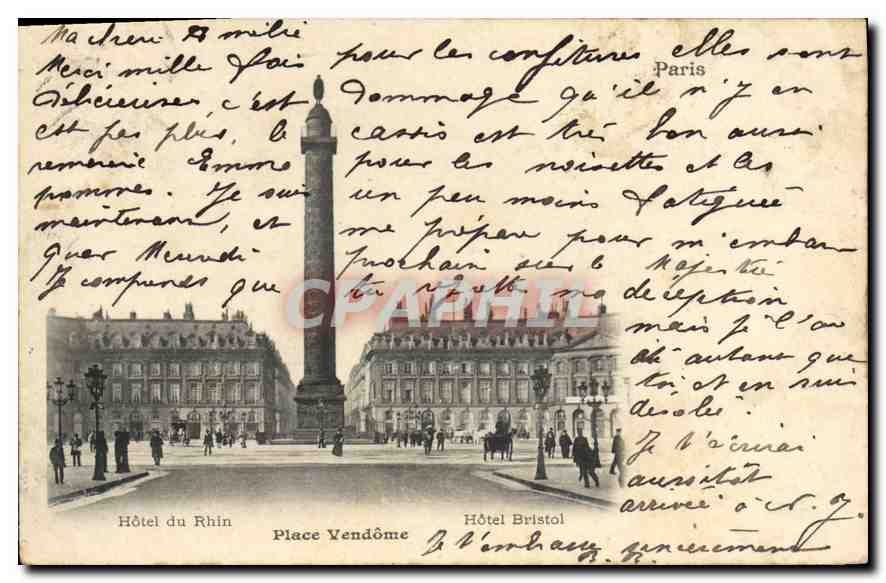 Ma chere Amélie
Merci mille fois pour les confitures elles sont
Paris
délicieuses, c'est dommage qu'il n'y en
est pas plus, le cassis est très bon aussi
remercie Emma pour les noisettes et les
pommes. Je suis un peu moins fatiguée
maintenant, et me prépare pour m'embar
quer Mercredi prochain sur le Majestic
Je comprends que tu regrette ma deception
mais je l'au
ai autant que
toi et en suis
désolée.
Je t'écrirai
aussitôt
arrivée à N. Y.
CPAPHIL
Hôtel du Rhin
Place Vendôme
Hôtel Bristol
Je t'embrasse sincèrement